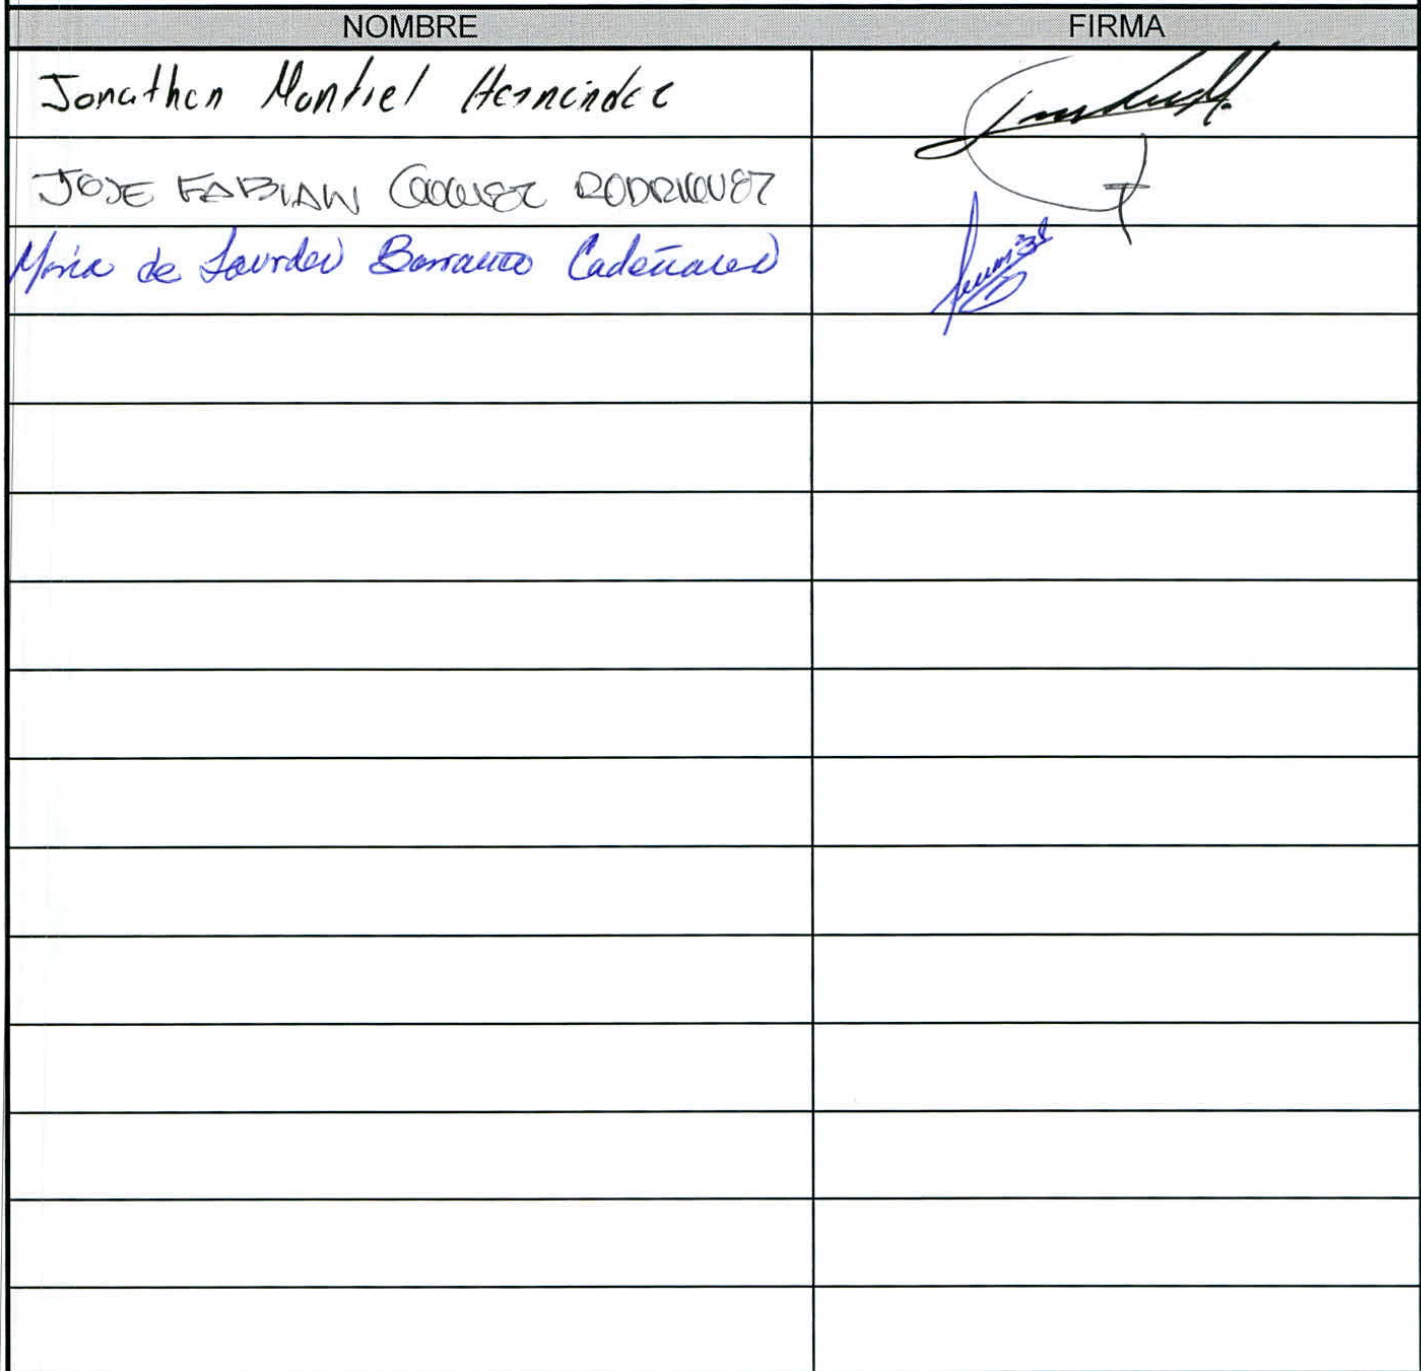 NOMBRE FIRMA
Jonathan Montiel Hernández
JOSE FABIAN RODRIGUEZ
Maria de Lourdes Barranco